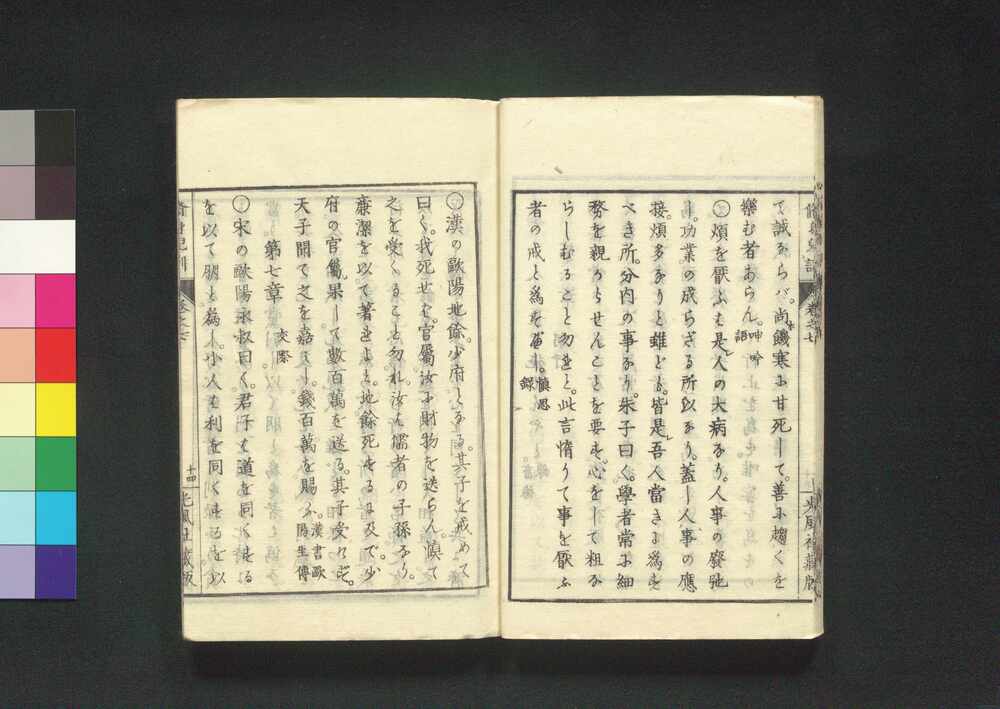 て誠ならバ。尚饑寒に甘死して。善に趨くを
樂む者あらん。呻吟語
○煩を厭ふは是人の大病なり。人事の廢弛
し。功業の成らざる所以なり。蓋し人事の應
接。煩多なりと雖ども。皆是吾人當さに爲す
べき所。分内の事なり。朱子曰く。學者常に細
務を親からせんことを要す。心をして粗な
らしむること勿れと。此言惰りて事を厭ふ
者の戒と爲すべし。愼思録
○漢の歐陽地餘。少府となる。其子を戒めて
曰く。我死せば。官屬汝に財物を送らん。愼て
之を受くること勿れ。汝は儒者の子孫なり。
廉潔を以て著せよと。地餘死するに及で。少
府の官屬。果して數百萬を送る。其子受けず。
天子聞て之を嘉し。錢百萬を賜ふ。漢書歐陽生傳
第七章 交際
○宋の歐陽永叔曰く。君子は道を同くする
を以て朋と爲し。小人は利を同くするを以
脩身兒訓 卷之七 十四 光風社藏版